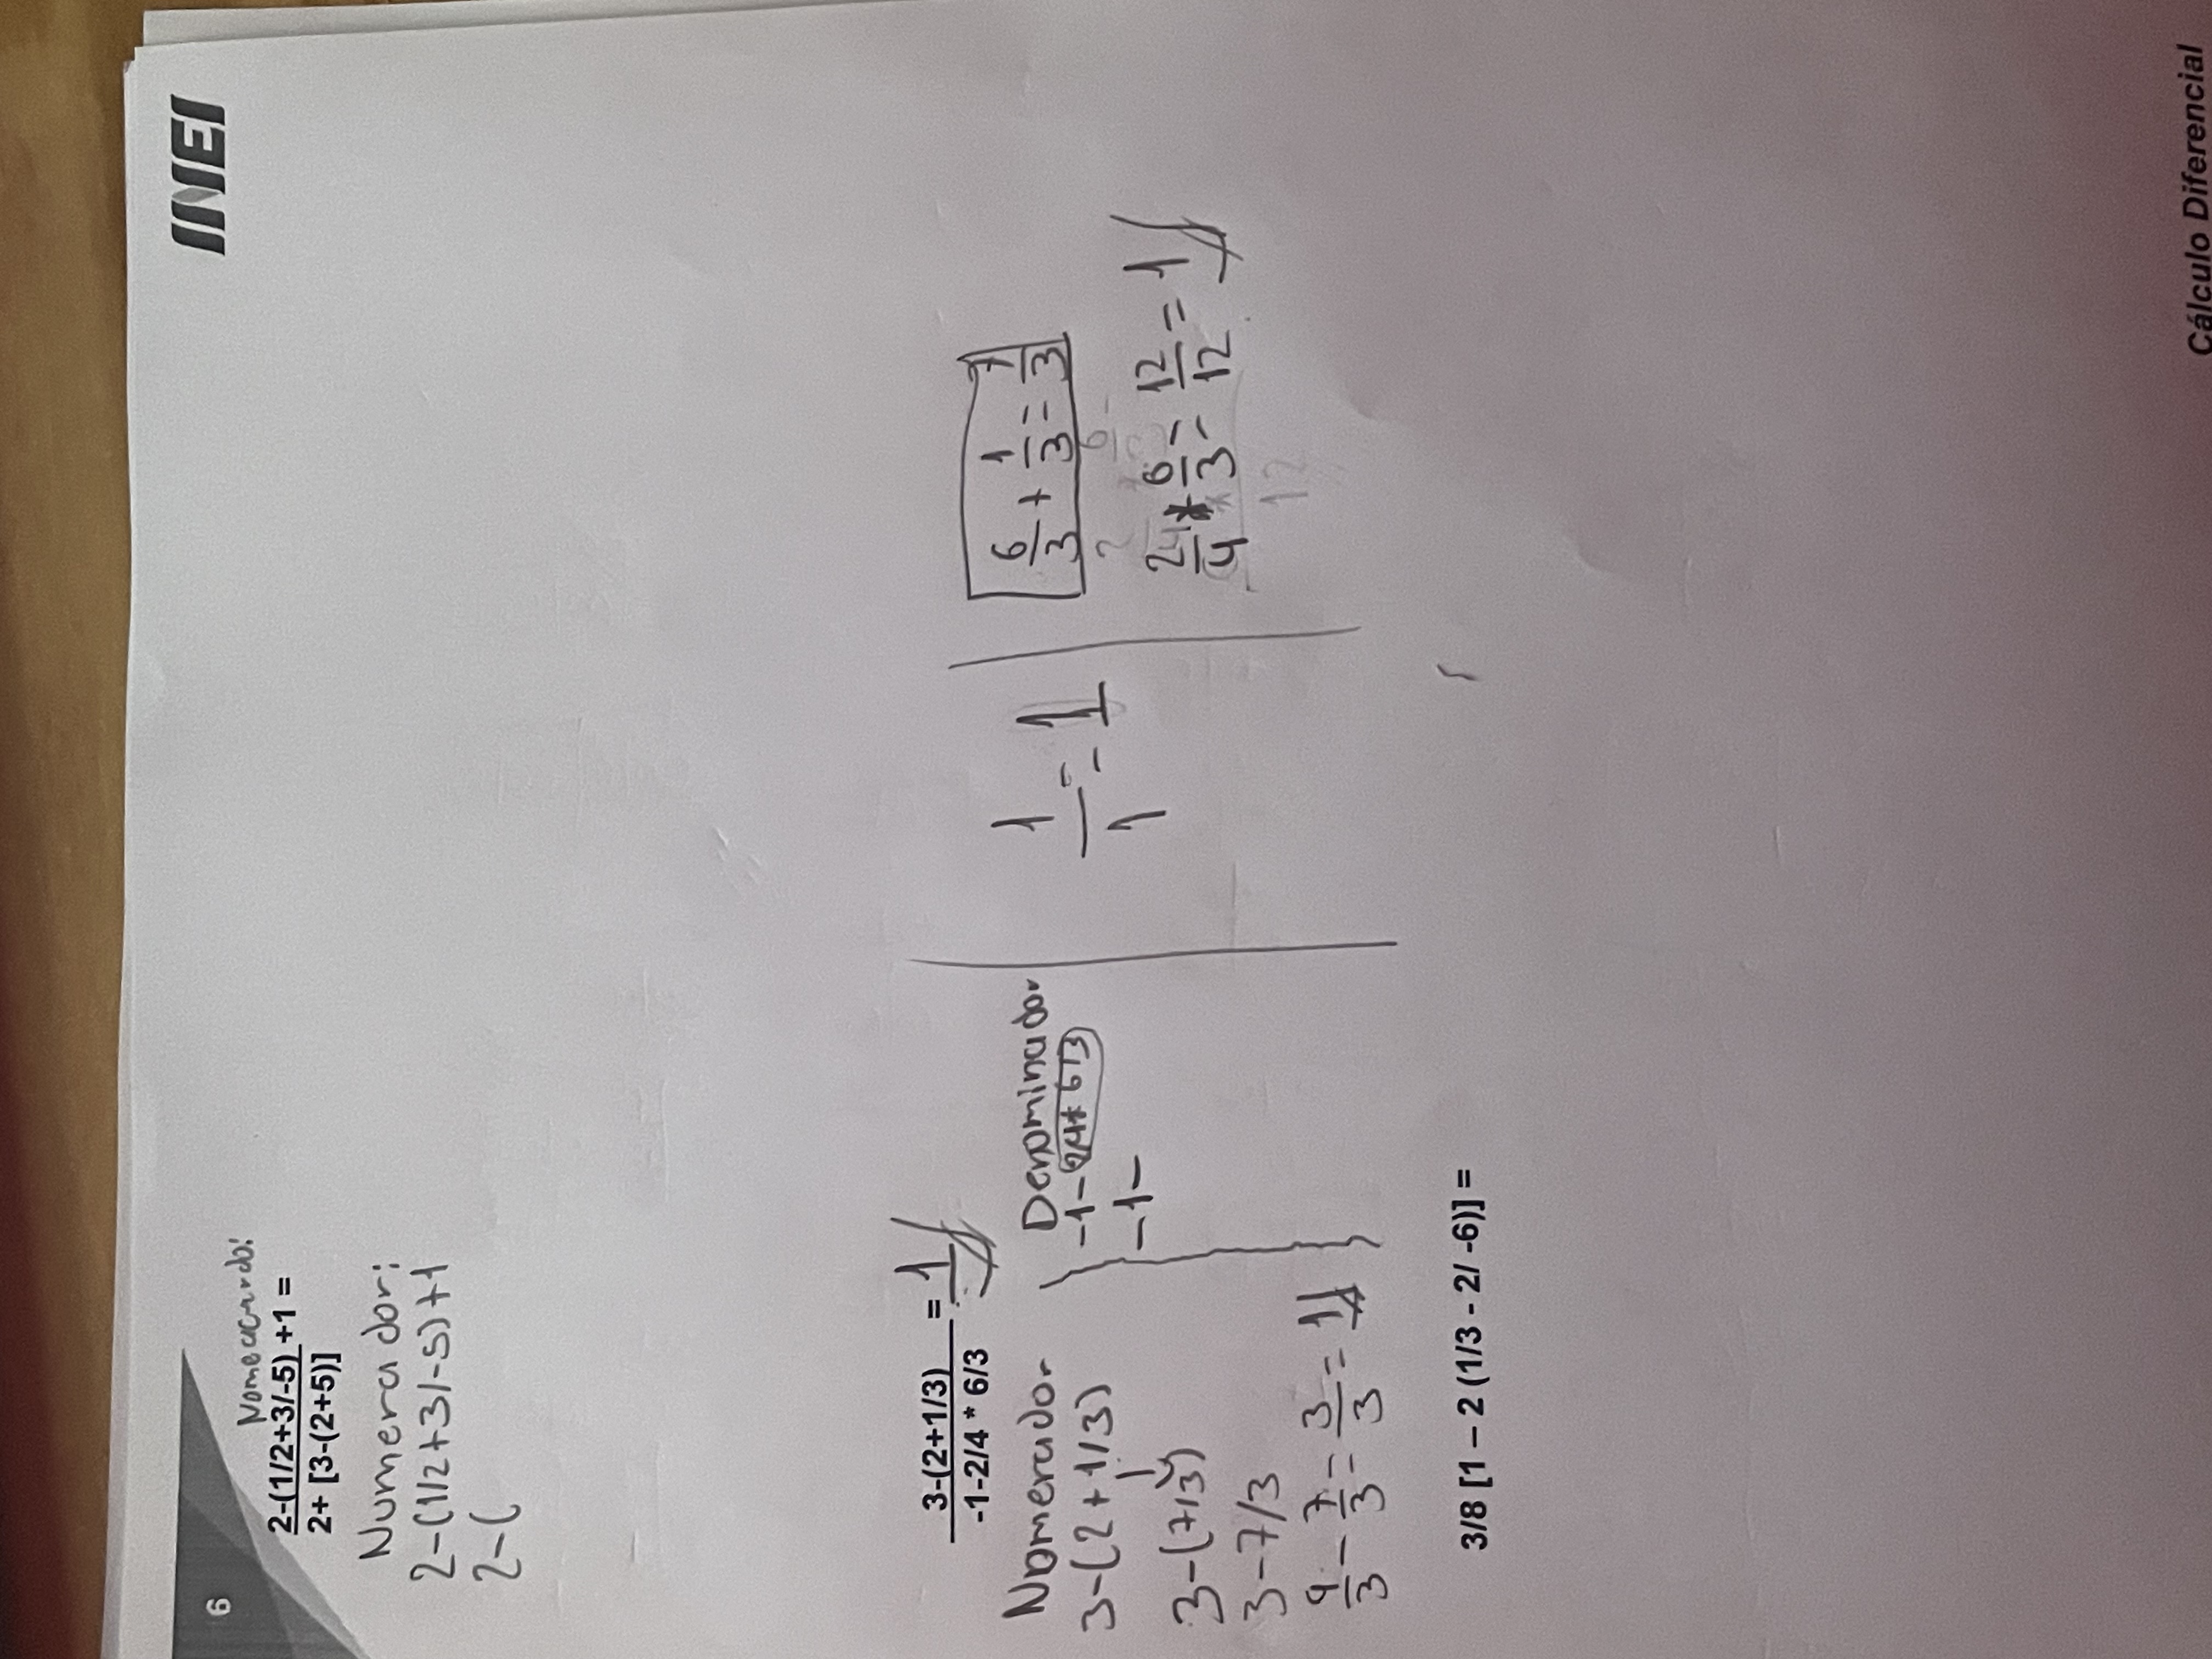 6
INEI
Nomeacurdo:
2-(1/2+3/-5) +1 =
2+ [3-(2+5)]
Numerador:
2-(1/2+3/-5)+1
2-(
3-(2+1/3) = 1
-1-2/4 * 6/3
Nomerador
3-(2+1/3)
3-(7/3)
3-7/3
9/3 - 7/3 = 3/3 = 1
Denominador
-1-2/4*6/3
-1-
1/1 = 1
6/3 + 1/3 = 7/3
2/4 * 6/3 = 12/12 = 1
12
3/8 [1 – 2 (1/3 - 2/ -6)] =
Cálculo Diferencial